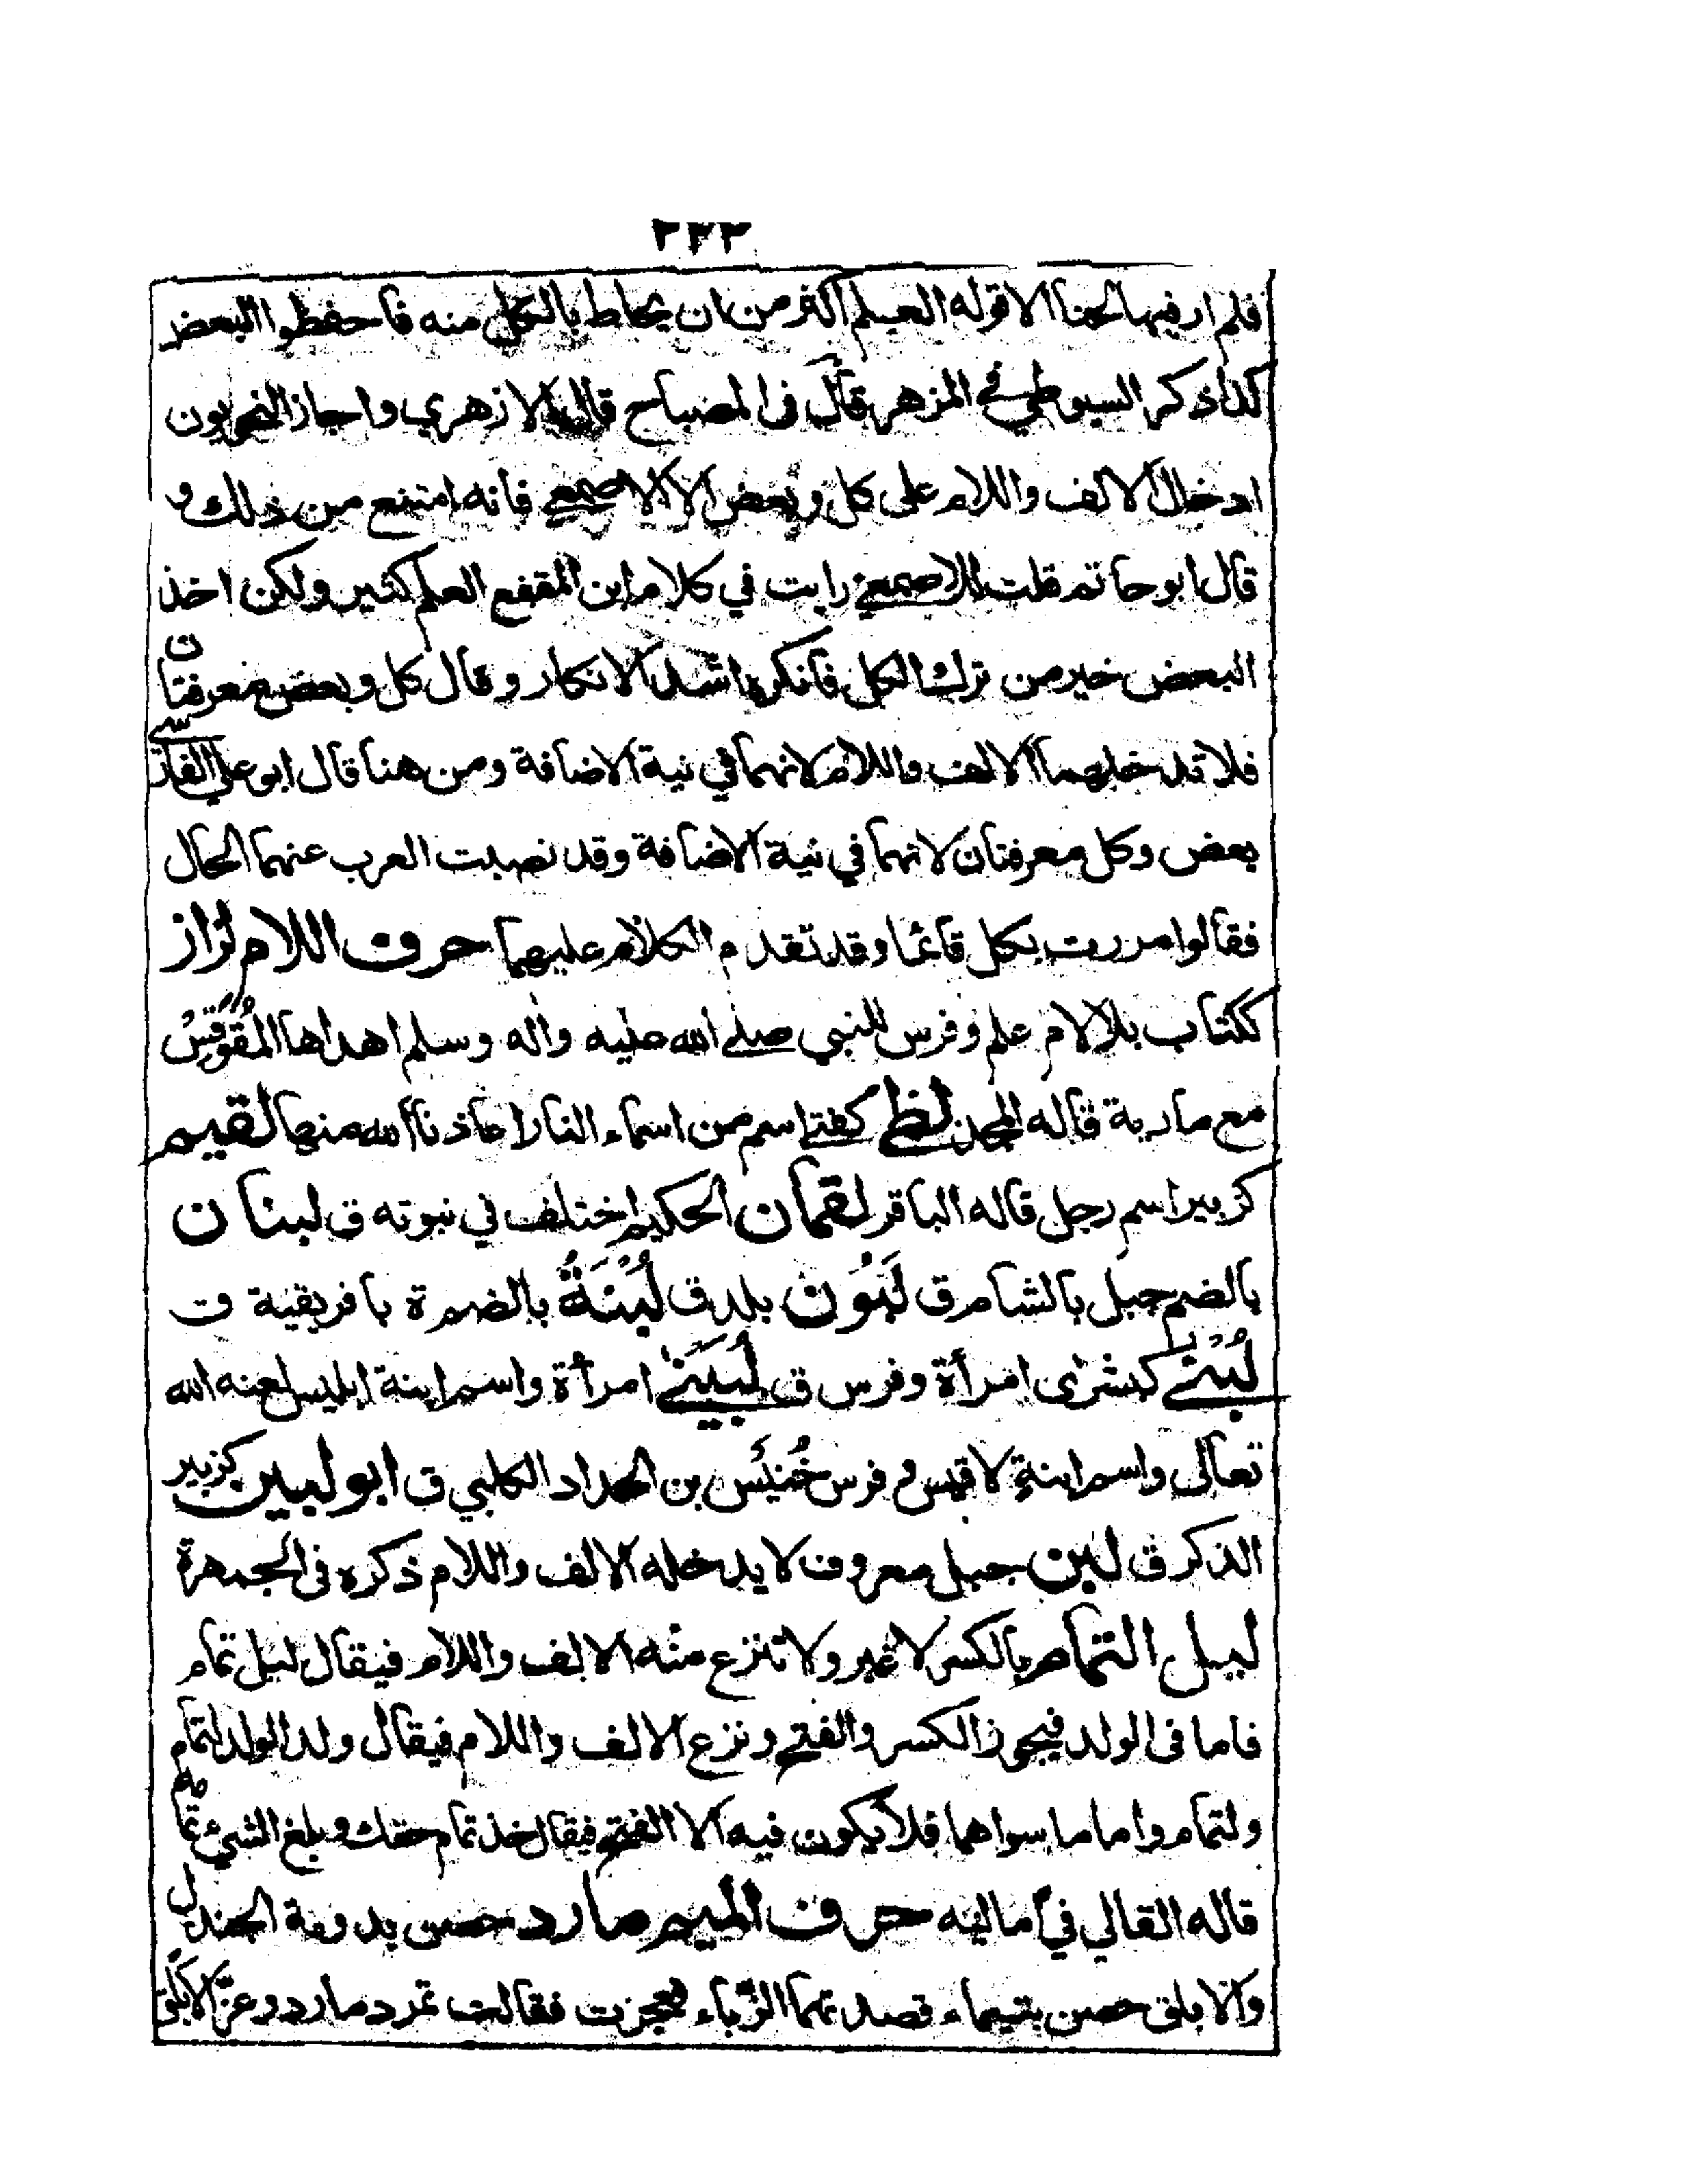 ٢٢٢
فلم ار فيها لحنا الا قوله العلم اكثر من ان يحاط بالكل منه فاحفظوا البعض
كذا ذكر السيوطي في المزهر قال فى المصباح قال الازهري واجاز النحويون
ادخال الالف واللام على كل وبعض الا الاصمعي فانه امتنع من ذلك و
قال ابو حاتم قلت للاصمعي رايت في كلام ابن المقفع العلم كثير ولكن اخذ
البعض خير من ترك الكل فانكره اشد الانكار وقال كل وبعض معرفتان
فلا تدخلهما الالف واللام لانهما في نية الاضافة ومن هنا قال ابو علي الفارسي
بعض وكل معرفتان لانهما في نية الاضافة وقد نصبت العرب عنهما الحال
فقالوا مررت بكل قائما وقد تقدم الكلام عليهما حرف اللام لزاز
ككتاب بلا لام علم وفرس للنبي صلى الله عليه واله وسلم اهداها المُقَوقِسْ
مع مارية قاله المجد لظى كفتى اسم من اسماء النار اعاذنا الله منها لقيم
كزبير اسم رجل قاله الباقر لقمان الحكيم اختلف في نبوته ق لبنان
بالضم جبل بالشام ق لَبُون بلد ق لُبْنَةُ بالضم ة بافريقية ق
لُبْنٰى كبشرى امرأة وفرس ق لُبَيْنٰى امرأة واسم ابنة ابليس لعنه الله
تعالى واسم ابنة لاقيس و فرس خُنَيْس بن الحداد الكلبي ق ابو لبين كزبير
الذكر ق لبن جبل معروف لا يدخله الالف واللام ذكره فى الجمهرة
ليل التمام بالكسر لا غير ولا تنزع منه الالف واللام فيقال ليل تمام
فاما فى الولد فيجوز الكسر والفتح ونزع الالف واللام فيقال ولد الولد لتمام
ولتمام واما ما سواهما فلا يكون فيه الا الفتح فيقال خذ تمام حقك وبلغ الشيء تمامه
قاله القالي في اماليه حرف الميم مارد حصن بدومة الجندل
والابلق حصن بتيماء قصدتهما الزباء فعجزت فقالت تمرد مارد وعز الابلق